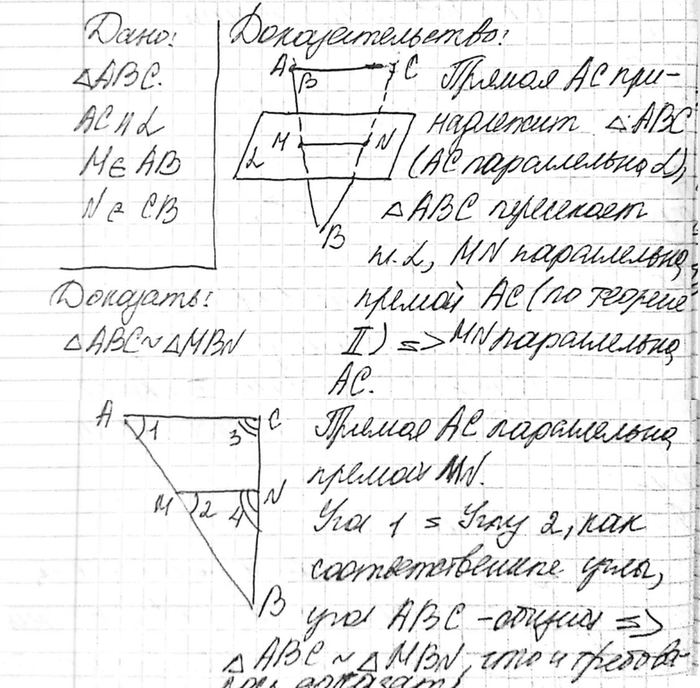 Дано:
△ABC.
AC ∥ α
M ∈ AB
N ∈ CB
Доказать:
△ABC ~ △MBN
Доказательство:
A B C
α M N
B
Прямая AC при-
надлежит △ABC
(AC параллельна α),
△ABC пересекает
пл. α, MN параллельна
прямой AC (по теореме
II) => MN параллельна
AC.
A 1 3 C
M 2 4 N
B
Прямая AC параллельна
прямой MN.
Угол 1 = Углу 2, как
соответственные углы,
угол ABC - общий =>
△ABC ~ △MBN, что и требова-
лось доказать